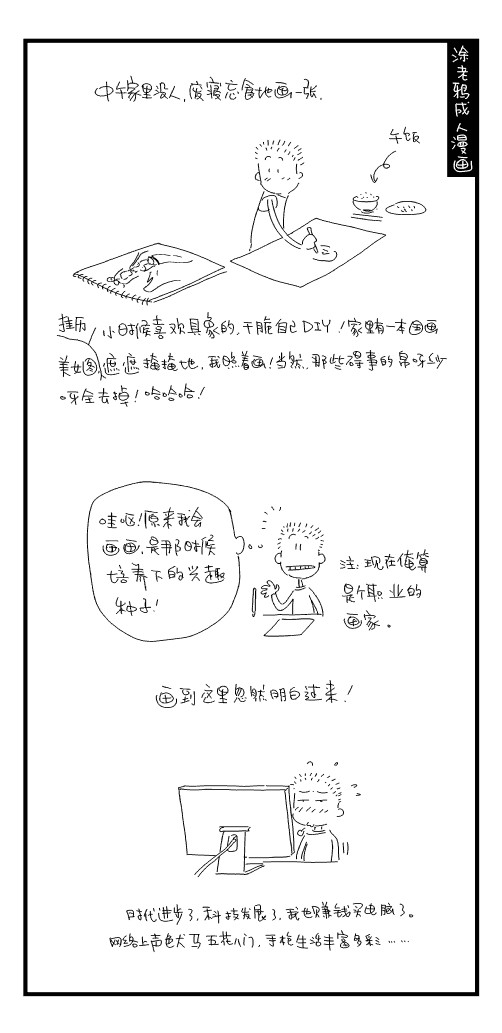 涂老鸦成人漫画
中午家里没人,废寝忘食地画一张.
午饭
小时候喜欢具象的,干脆自己DIY!家里有一本国画
挂历
美女图,遮遮掩掩地,我照着画!当然,那些碍事的帛呀纱
呀全去掉!哈哈哈!
哇呕!原来我会
画画,是那时候
培养下的兴趣
种子!
注:现在俺算
是个职业的
画家。
画到这里忽然明白过来!
时代进步了,科技发展了,我也赚钱买电脑了。
网络上声色犬马五花八门,手枪生活丰富多彩……